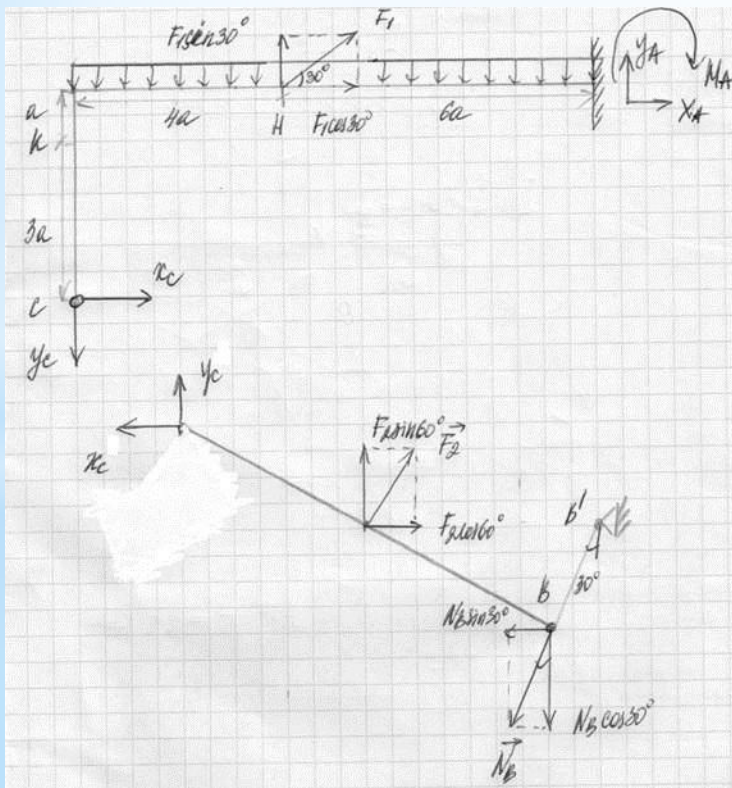 F₁sin30°
F₁
30°
yA
MA
xA
a
4a
H
F₁cos30°
6a
K
3a
C
xC
yC
yC
xC
F₂sin60°
F₂
F₂cos60°
B'
30°
B
NBsin30°
NBcos30°
NB